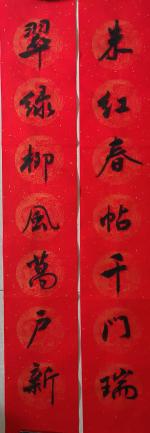 朱红春帖千门瑞
翠绿柳風萬户新